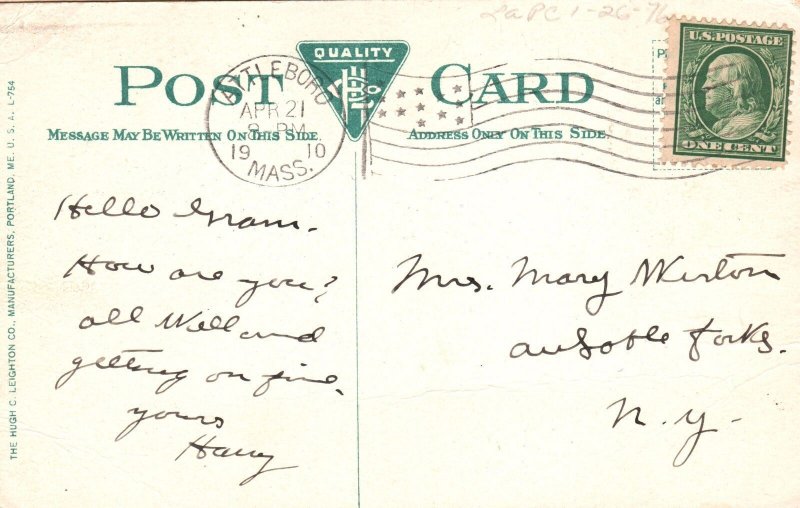 LaPC 1-26-76
POST CARD
QUALITY
ATTLEBORO
APR 21
8 PM
19 10
MASS.
U.S. POSTAGE
ONE CENT
MESSAGE MAY BE WRITTEN ON THIS SIDE.
ADDRESS ONLY ON THIS SIDE
THE HUGH C. LEIGHTON CO., MANUFACTURERS, PORTLAND, ME. U. S. A. L-754
Hello Gram.
How are you?
all Well and
getting on fine.
yours
Harry
Mrs. Mary
auSable Forks.
N. Y.